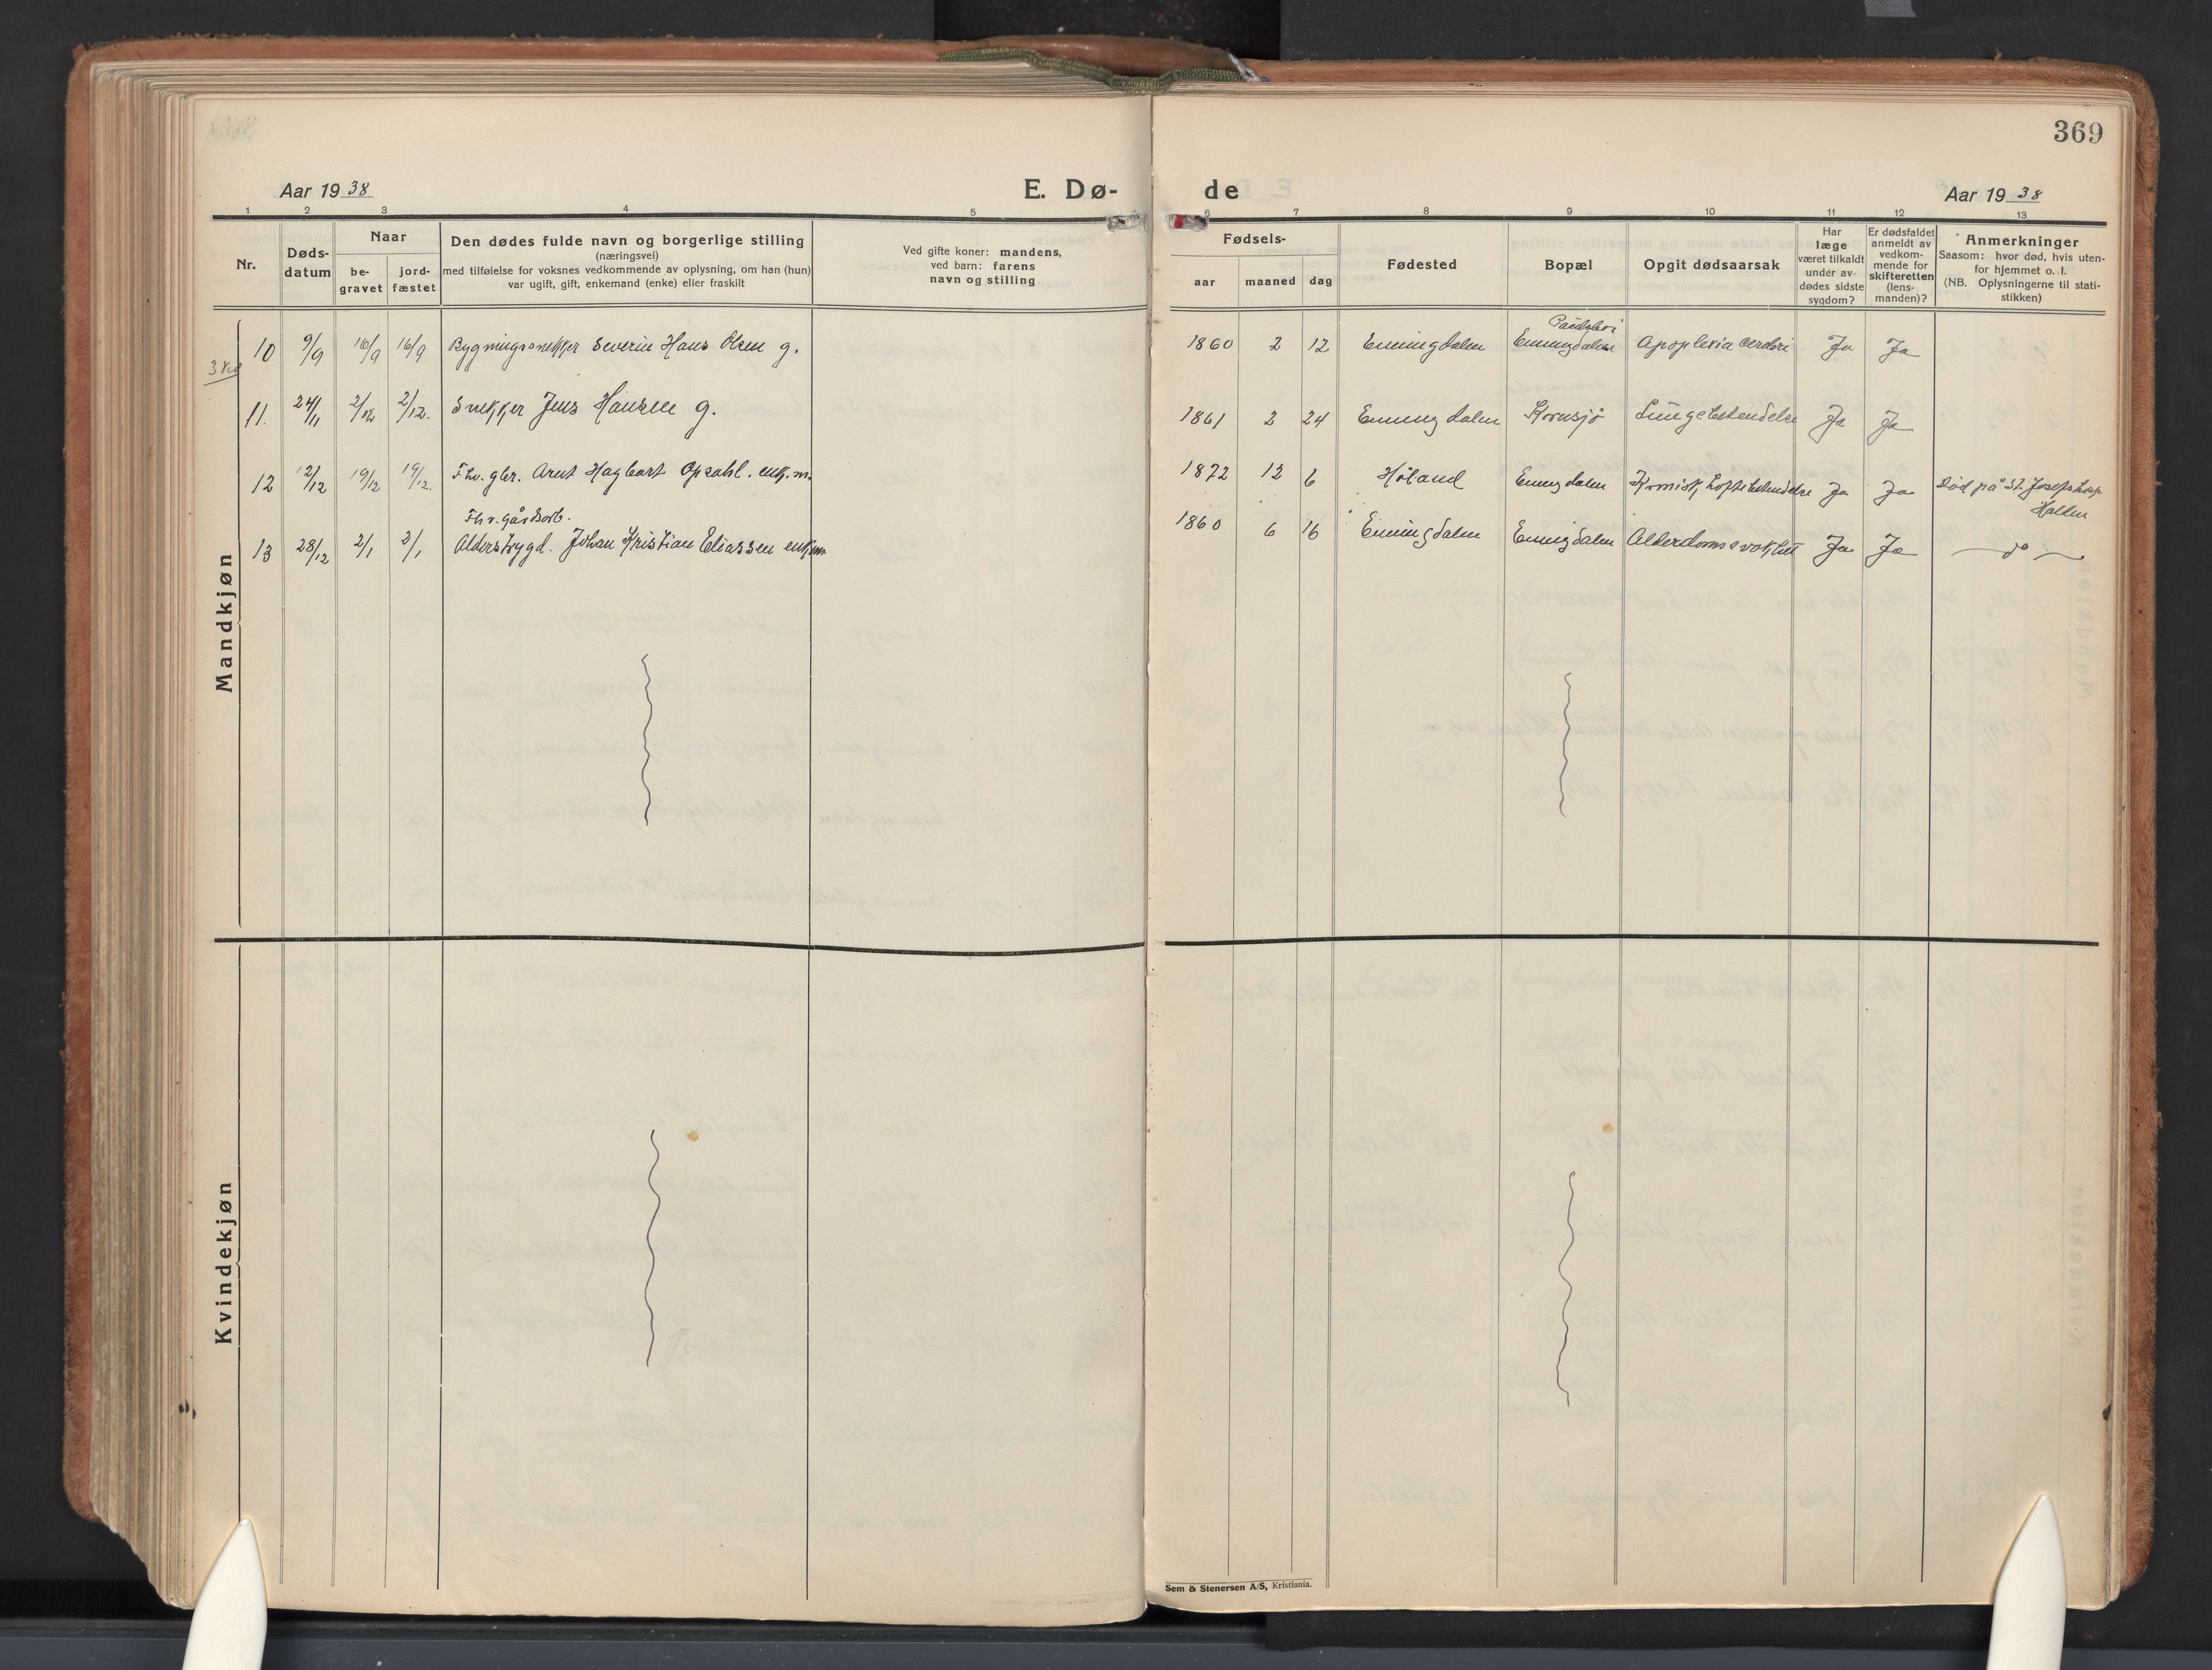 369
Aar 1938
E. Dø-
de
Aar 1938
1 2 3 4 5 6 7 8 9 10 11 12 13
Nr.
Døds-
datum
Naar
be-
gravet
jord-
fæstet
Den dødes fulde navn og borgerlige stilling
(næringsvei)
med tilføielse for voksnes vedkommende av oplysning, om han (hun)
var ugift, gift, enkemand (enke) eller fraskilt
Ved gifte koner: mandens,
ved barn: farens
navn og stilling
Fødsels-
aar
maaned
dag
Fødested
Bopæl
Opgit dødsaarsak
Har
læge
været tilkaldt
under av-
dødes sidste
sygdom?
Er dødsfaldet
anmeldt av
vedkom-
mende for
skifteretten
(lens-
manden)?
Anmerkninger
Saasom: hvor død, hvis uten-
for hjemmet o. l.
(NB. Oplysningerne til stati-
stikken)
Mandkjøn
10 9/9 16/9 16/9 Bygningssnekker Severin Hans Olsen g. 1860 2 12 Enningdalen Enningdalen Apoplexia cerebri Ja Ja
11. 24/11 2/12 2/12. Snekker Jens Hansen g. 1861 2 24 Enningdalen Kornsjø Lungebetendelse Ja Ja
12 12/12 19/12 19/12. Fhv. gbr. Arnt Hagbart Opsahl. enk.m. 1872 12 6 Høland Enningdalen Kronisk hoftebetendelse Ja Ja Død på St. Josephs hosp
Halden
Fhv. Gårdsarb.
13 28/12 2/1 2/1 Alderstrygd. Johan Kristian Eliassen enkem 1860 6 16 Enningdalen Enningdalen Alderdomssvakhet Ja Ja do
Kvindekjøn
Sem & Stenersen A/S, Kristiania.